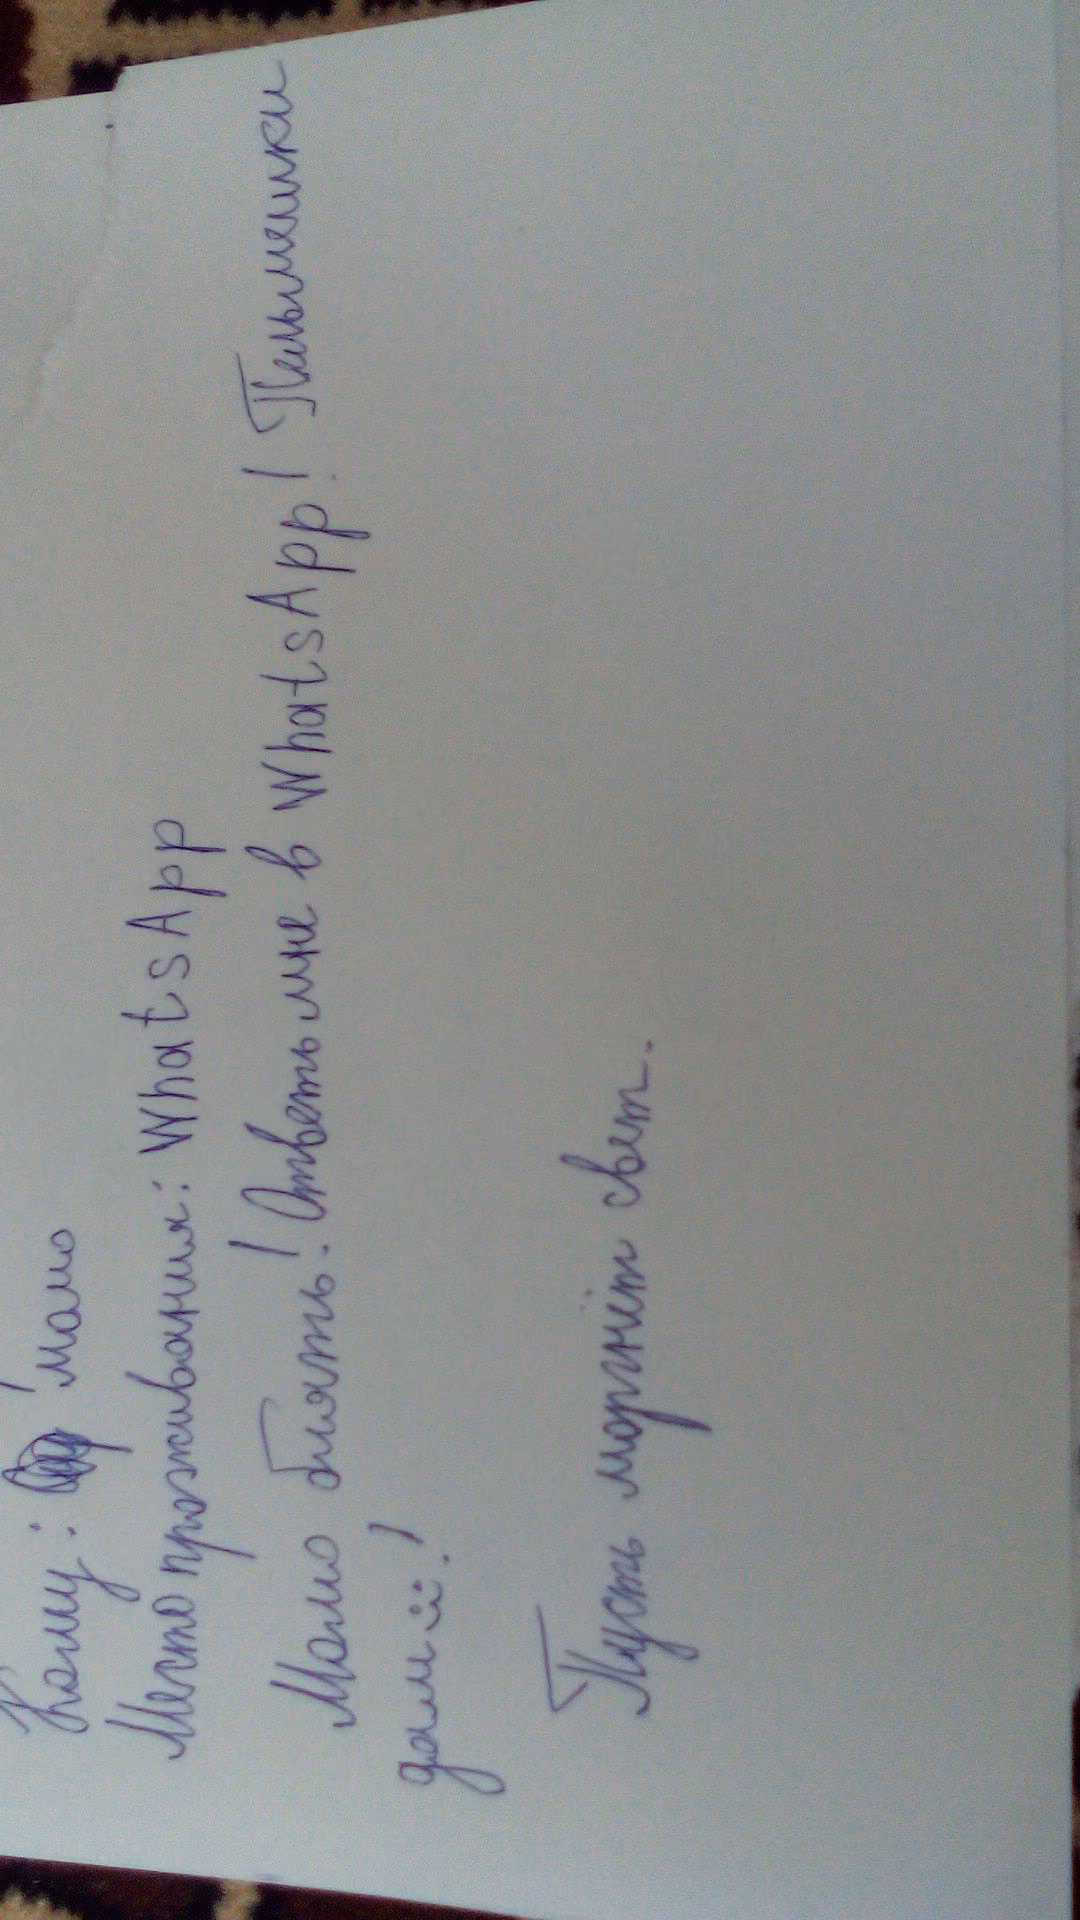 Кому: Момо
Место проживания: WhatsApp
Момо блять! Ответь мне в WhatsApp! Пельмешки
дам ü!
Пусть моргнёт свет.